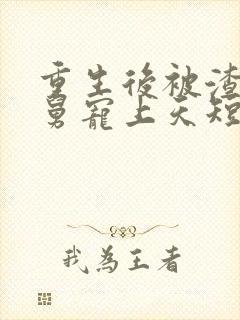 重生後被渣
舅寵上天短
我為王者